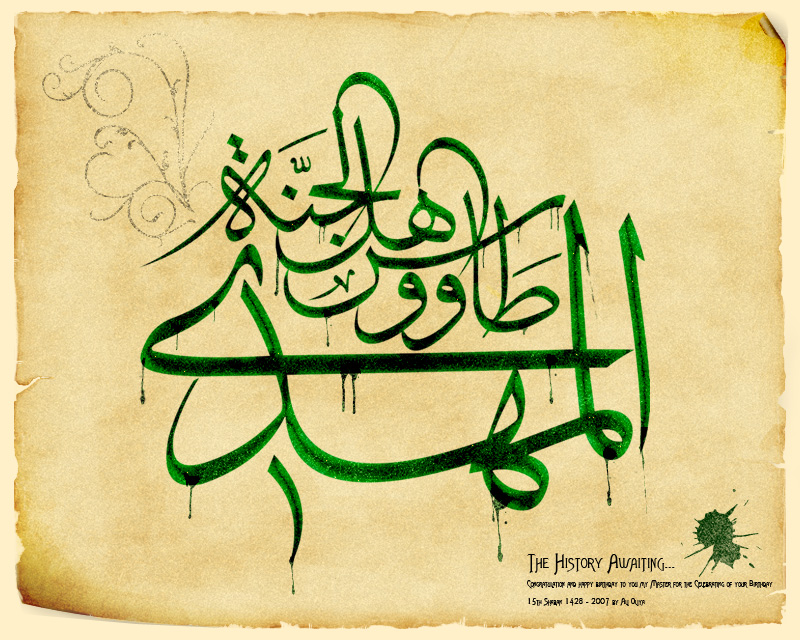 المهدي
طاووس
أهل الجنَّة
The History Awaiting...
Congratulation and happy birthday to you my Master for the Celebrating of your Birthday
15th Shaban 1428 - 2007 by Ali Oliya